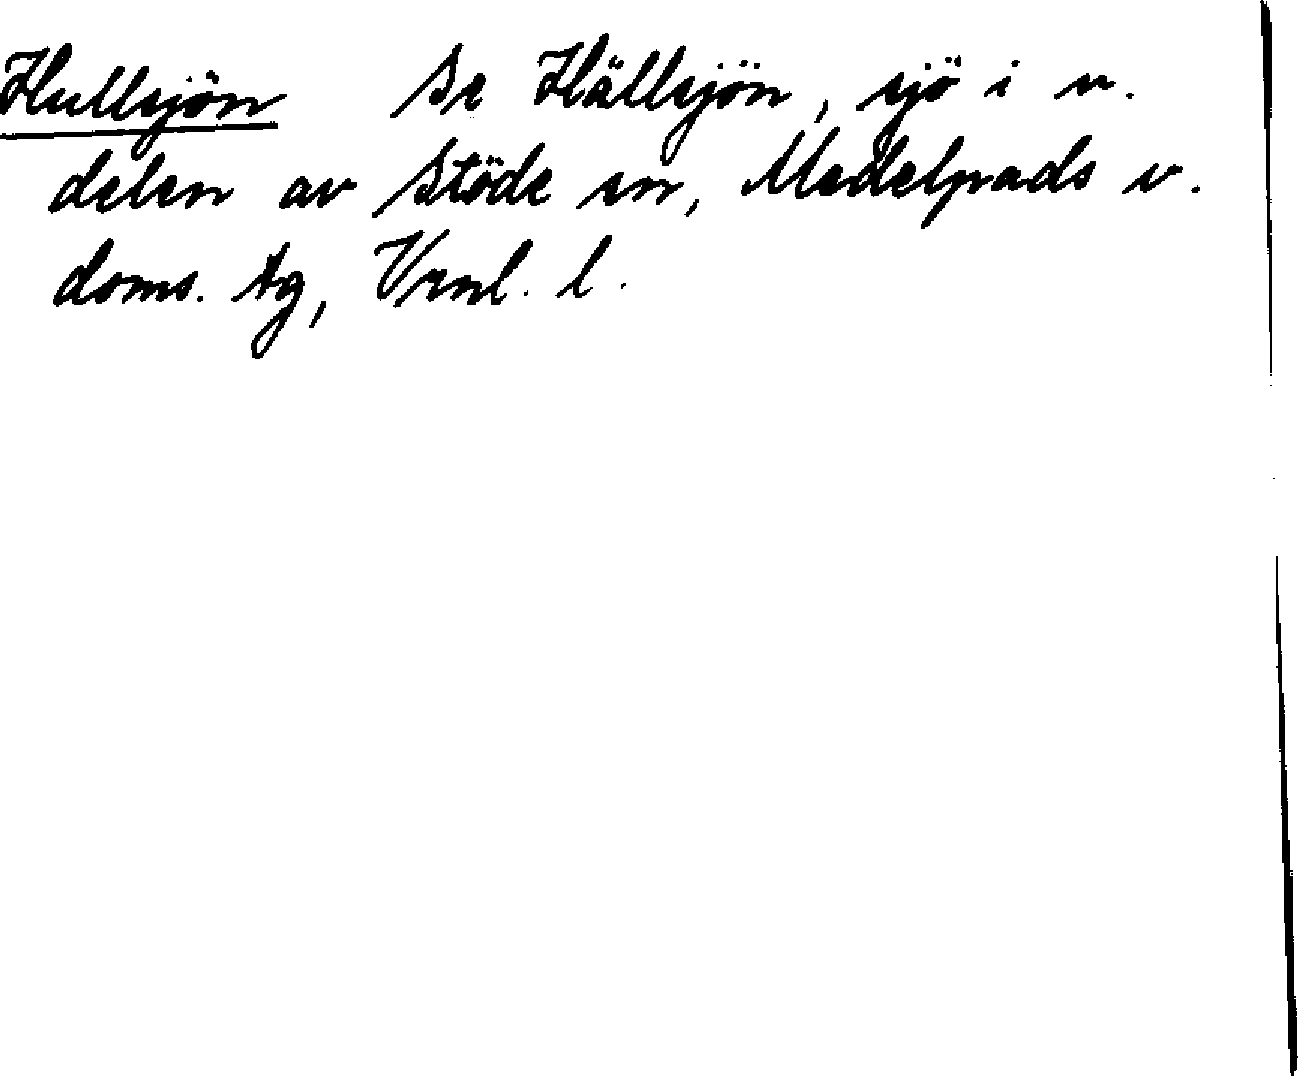 Hullsjön Se Hällsjön, sjö i v.
delen av Stöde sn, Medelpads v.
doms. tg, Vrnl. l.